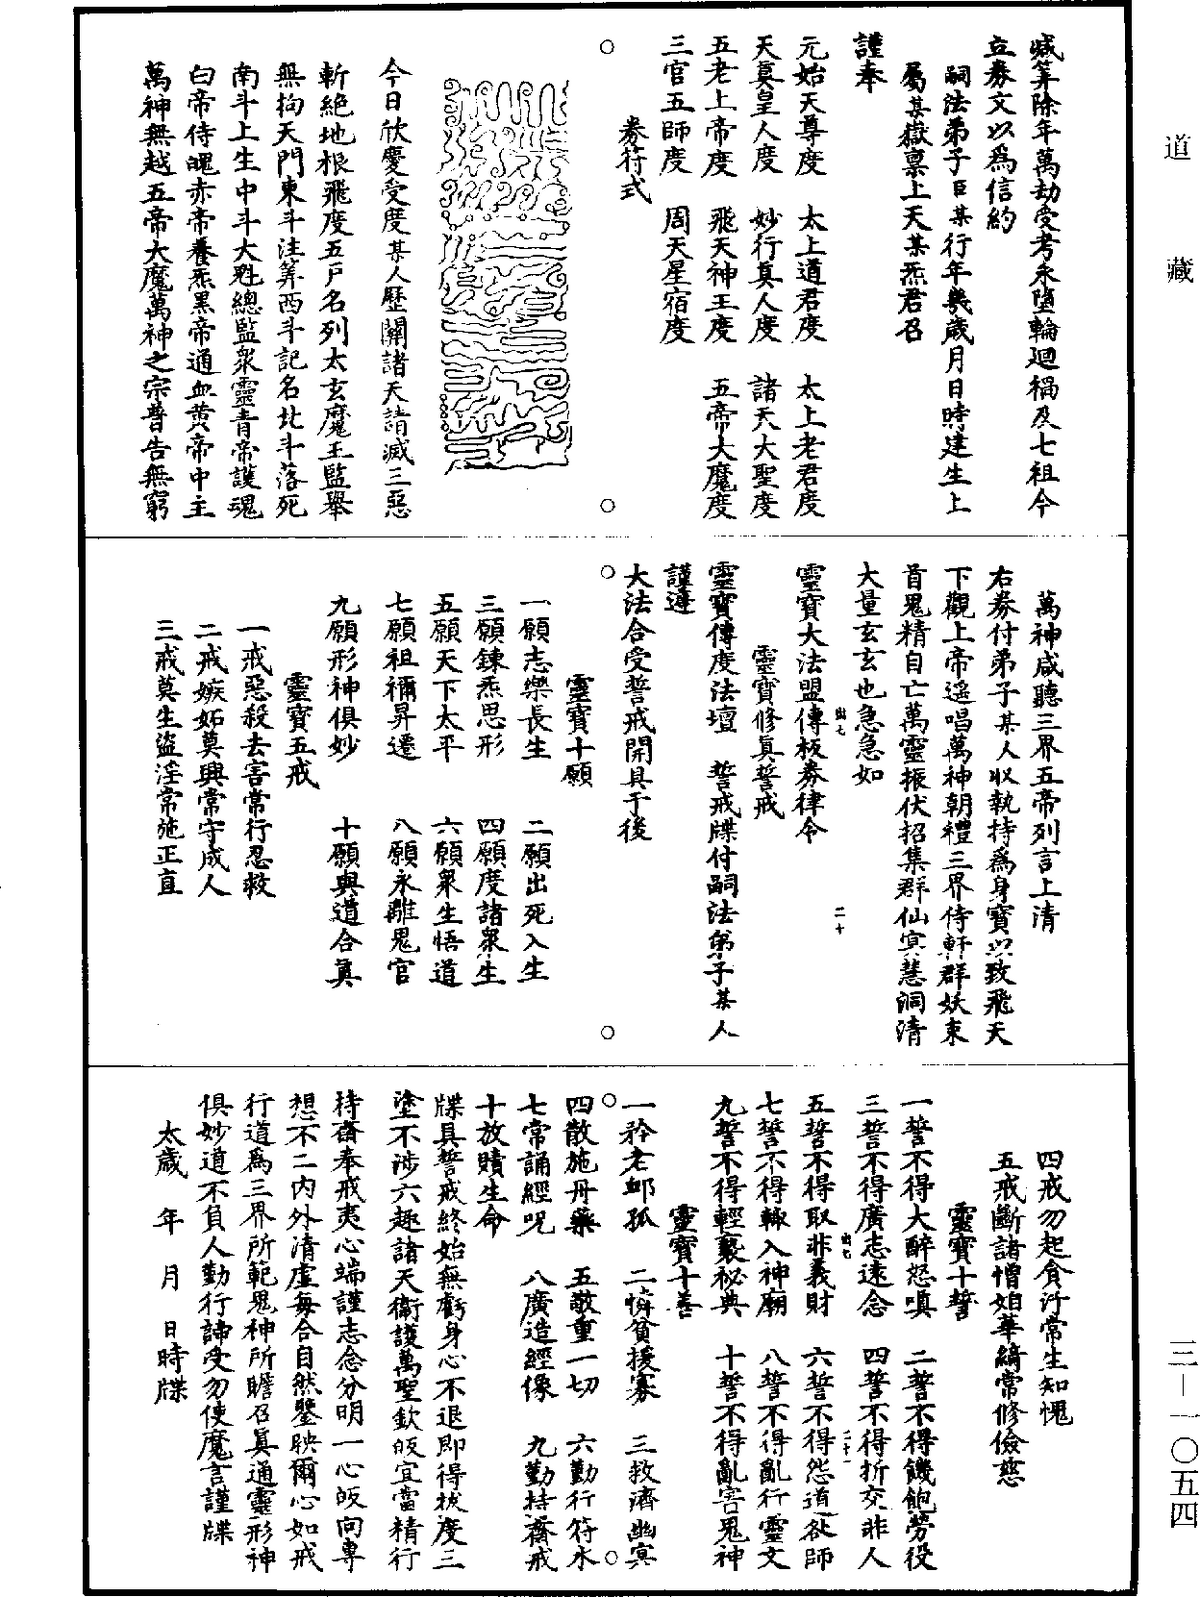 道藏
減筭除年萬劫受考永墮輪迴禍及七祖今
立券文以爲信約
嗣法弟子臣某行年幾歲月日時建生上
屬某嶽稟上天某炁君召
謹奉
元始天尊度　太上道君度　太上老君度
天眞皇人度　妙行眞人度　諸天大聖度
五老上帝度　飛天神王度　五帝大魔度
三官五師度　周天星宿度
券符式
今日欣慶受度某人歷關諸天請滅三惡
斬絕地根飛度五戶名列太玄魔王監舉
無拘天門東斗注筭西斗記名北斗落死
南斗上生中斗大魁總監衆靈青帝護魂
白帝侍魄赤帝養炁黑帝通血黄帝中主
萬神無越五帝大魔萬神之宗普告無窮
萬神咸聽三界五帝列言上清
右券付弟子某人收執持爲身寶以致飛天
下觀上帝遥唱萬神朝禮三界侍軒群妖束
首鬼精自亡萬靈振伏招集群仙冥慧洞清
大量玄玄也急急如
出七
二十
靈寶大法盟傳板券律令
靈寶修真誓戒
靈寶傳度法壇　誓戒牒付嗣法弟子某人
謹遵
大法合受誓戒開具于後
靈寶十願
一願志樂長生　二願出死入生
三願鍊炁思形　四願度諸衆生
五願天下太平　六願衆生悟道
七願祖禰昇遷　八願永離鬼官
九願形神俱妙　十願與道合眞
靈寶五戒
一戒惡殺去害常行忍救
二戒嫉妬莫興常守成人
三戒莫生盜淫常施正直
四戒勿起貪汙常生知愧
五戒斷諸憎妲華綺常修儉慈
靈寶十誓
一誓不得大醉怒嗔　二誓不得饑飽勞役
三誓不得廣志遠念　四誓不得折交非人
出七
二十一
五誓不得取非義財　六誓不得怨道咎師
七誓不得輙入神廟　八誓不得亂行靈文
九誓不得輕褻秘典　十誓不得亂害鬼神
靈寶十善
一矜老卹孤　二憐貧援寡　三救濟幽冥
四散施丹藥　五敬重一切　六勤行符水
七常誦經呪　八廣造經像　九勤持齋戒
十放贖生命
牒具誓戒終始無虧身心不退即得拔度三
塗不涉六趣諸天衞護萬聖欽皈宜當精行
持齋奉戒夷心端謹志念分明一心皈向專
想不二内外清虚每合自然鑒映爾心如戒
行道爲三界所範鬼神所瞻召眞通靈形神
俱妙道不負人勤行諦受勿使魔言謹牒
太歲　年　月　日時牒
三—一〇五四